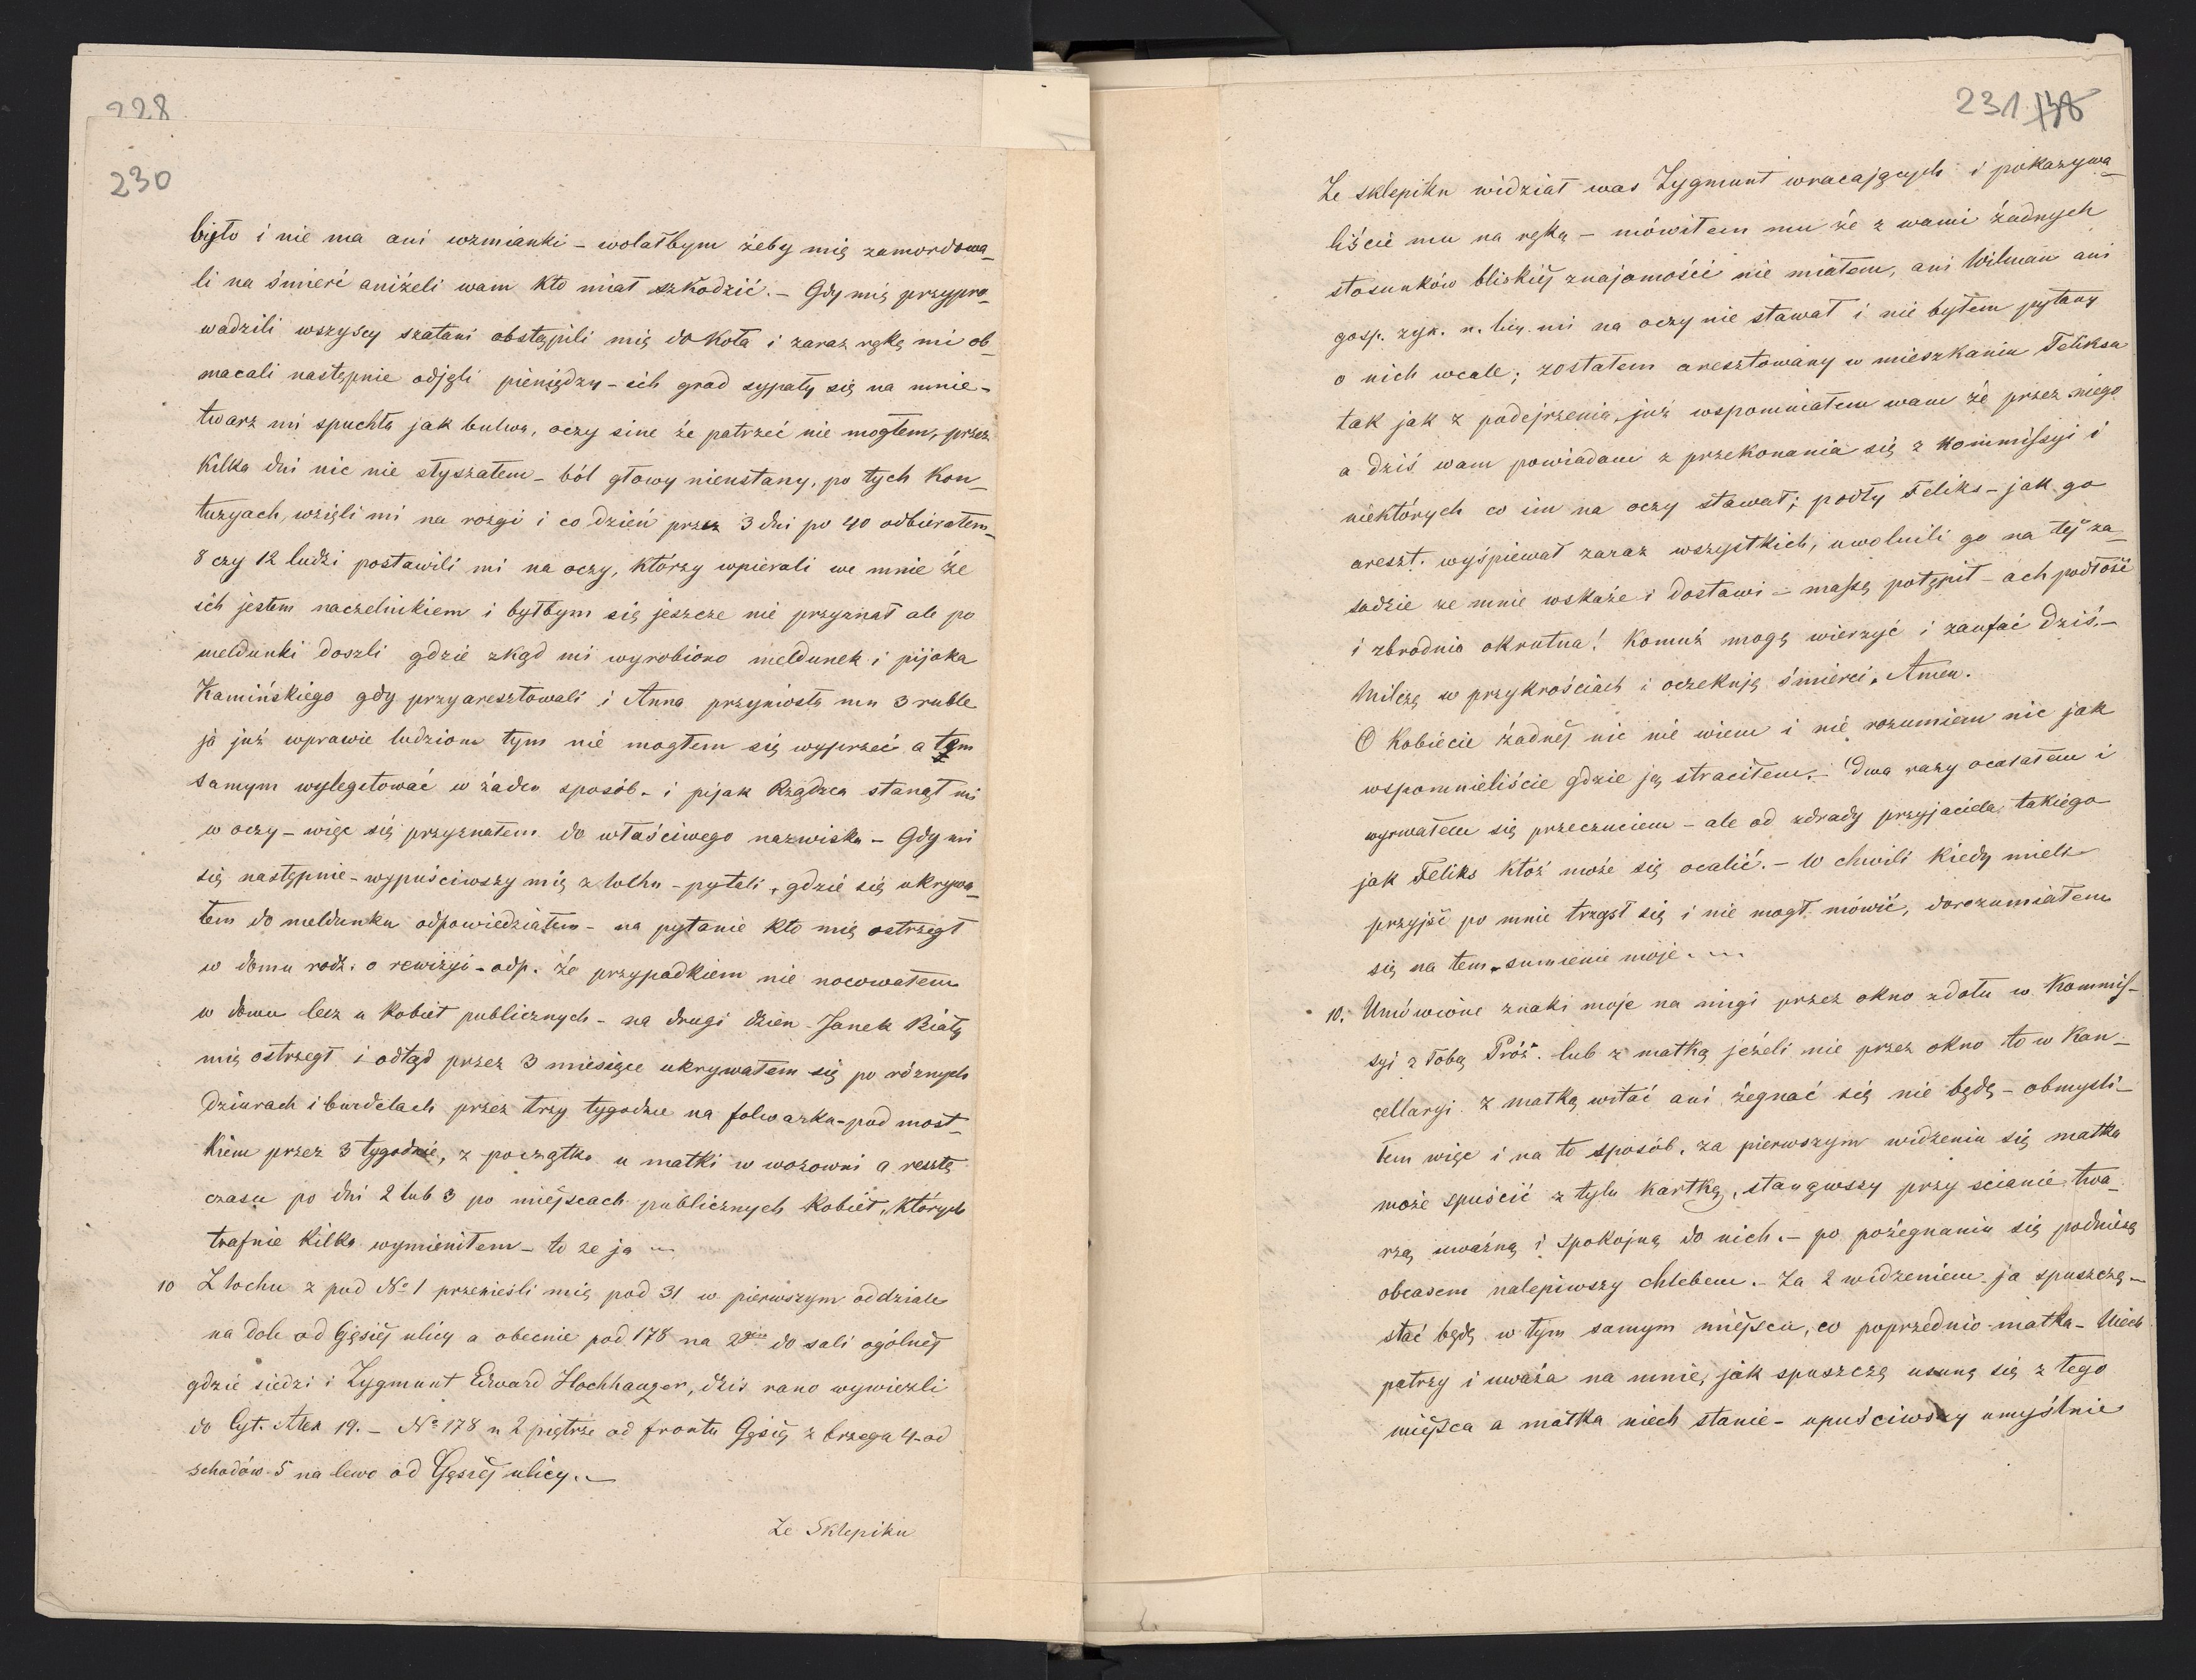 228
230
było i nie ma ani wzmianki – wolałbym żeby mię zamordowa_
li na śmierć aniżeli wam kto miał szkodzić. – Gdy mię przypro_
wadzili wszyscy szatani obstąpili mię do koła i zaraz rękę mi ob_
macali następnie odjęli pieniędzy – ich grad sypały się na mnie –
twarz mi spuchła jak bulwa, oczy sine że patrzeć nie mogłem, przez
kilka dni nic nie słyszałem – ból głowy nieustany, po tych kon_
tuzyach, wzięli mi na rózgi i co dzień przez 3 dni po 40 odbierałem_
8 czy 12 ludzi postawili mi na oczy, którzy wpierali we mnie że
ich jestem naczelnikiem i byłbym się jeszcze nie przyznał ale po
meldunki doszli gdzie zkąd mi wyrobiono meldunek i pijaka
Kamińskiego gdy przyaresztowali i Anna przyniosła mu 3 ruble
ja już wprawie ludziom tym nie mogłem się wyprzeć a tem
samym wylegitować w żaden sposób – i pijak Rządzca stanął mi
w oczy – więc się przyznałem do właściwego nazwiska – Gdy mi
się następnie – wypuściwszy mię z lochu – pytali, gdzie się ukrywa_
łem do meldunku odpowiedziałem – na pytanie kto mię ostrzegł
w domu rodz. o rewizyi – odp. że przypadkiem nie nocowałem
w domu lecz u kobiet publicznych – na drugi dzien Janek Biały
mię ostrzegł i odtąd przez 3 miesiące ukrywałem się po różnych
dziurach i burdelach przez trzy tygodnie na folwarku – pod most_
kiem przez 3 tygodnie, z początku u matki w wozowni a resztę
czasu po dni 2 lub 3 po miejscach publicznych kobiet, których
trafnie kilka wymieniłem – to ze ja ...
10 Z lochu z pod No 1 przenieśli mię pod 31 w pierwszym oddziale
na dole od Gęsiéj ulicy a obecnie pod 178 na 2gim do sali ogólnéj
gdzie siedzi i Zygmunt Edward Hochhauzer, dziś rano wywieźli
do Cyt. Alex 19. – No 178 n 2 piętrze od frontu Gęsiéj z brzegu 4 – od
schodów 5 na lewo od Gęsiéj ulicy. –
Ze Sklepiku
231 138
Ze sklepiku widział was Zygmunt wracających i pokazywa_
liście mu na rękę – mówiłem mu że z wami żadnych
stosunków bliskiéj znajomości nie miałem, ani Wilman ani
gosp. zyg. n. mi na oczy nie stawał i nie byłem pytany
o nich wcale; zostałem aresztowany w mieszkaniu Feliksa
tak jak z podejrzenia już wspomniałem wam że przez niego
a dziś wam powiadam z przekonania się z kommissyi i
niektórych co im na oczy stawał; podły Feliks – jak go
areszt. wyśpiewał zaraz wszystkich, uwolnili go na téj za_
sadzie ze mnie wskaże i dostawi – massę potępił – ach podłość
i zbrodnia okrutna! Komuż mogę wierzyć i zaufać dziś. –
Milczę w przykrościach i oczekuję śmierci. Amen.
O kobiecie żadnéj nic nie wiem i nie rozumiem nic jak
wspomnieliście gdzie ją straciłem. – Dwa razy ocalałem i
wyrwałem się przeczuciem – ale od zdrady przyjaciela takiego
jak Feliks któż może się ocalić. – W chwili kiedy mieli
przyjść po mnie trząsł się i nie mógł mówić, dorozumiałem
się na tem – sumienie moje. ...
10. Umówione znaki moje na migi przez okno z dołu w Kommis_
syi z Tobą Próż. lub z matką jeżeli nie przez okno to w Kan_
cellaryi. z matką witać ani żegnać się nie będę – obmyśli_
łem więc i na to sposób. za pierwszym widzeniu się matka
może spuścić z tyłu kartkę, stanąwszy przy scianie twa_
rzą uważną i spokojną do nich. – po pożegnaniu się podniosę
obcasem nalepiwszy chlebem. – Za 2 widzeniem ja spuszczę –
stać będę w tym samym miejscu, co poprzednio matka – Niech
patrzy i uważa na mnie, jak spuszczę usunę się z tego
miejsca a matka niech stanie – upuściwszy umyślnie